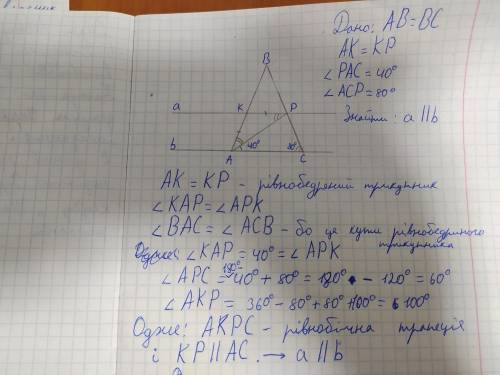 Дано: AB=BC
AK=KP
∠PAC=40°
∠ACP=80°
Знайти: a||b
B
a
K
P
b
A
40°
80°
C
AK=KP - рівнобедрений трикутник
∠KAP=∠APK
∠BAC=∠ACB - бо це кути рівнобедреного
трикутника
Одже: ∠KAP=40°=∠APK
180°-
∠APC=40°+80°=120° - 120°=60°
∠AKP=360°-80°+80°+100°=100°
Одже: AKPC - рівнобічна трапеція
і KP||AC → a||b